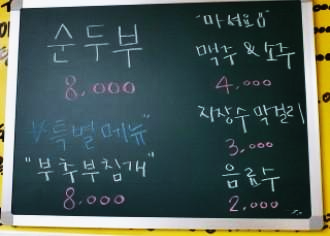 순두부
8.000
☆특별메뉴"
"부추부침개"
8.000
"마셔요"
맥주 & 소주
4.000
지장수 막걸리
3.000
음료수
2.000